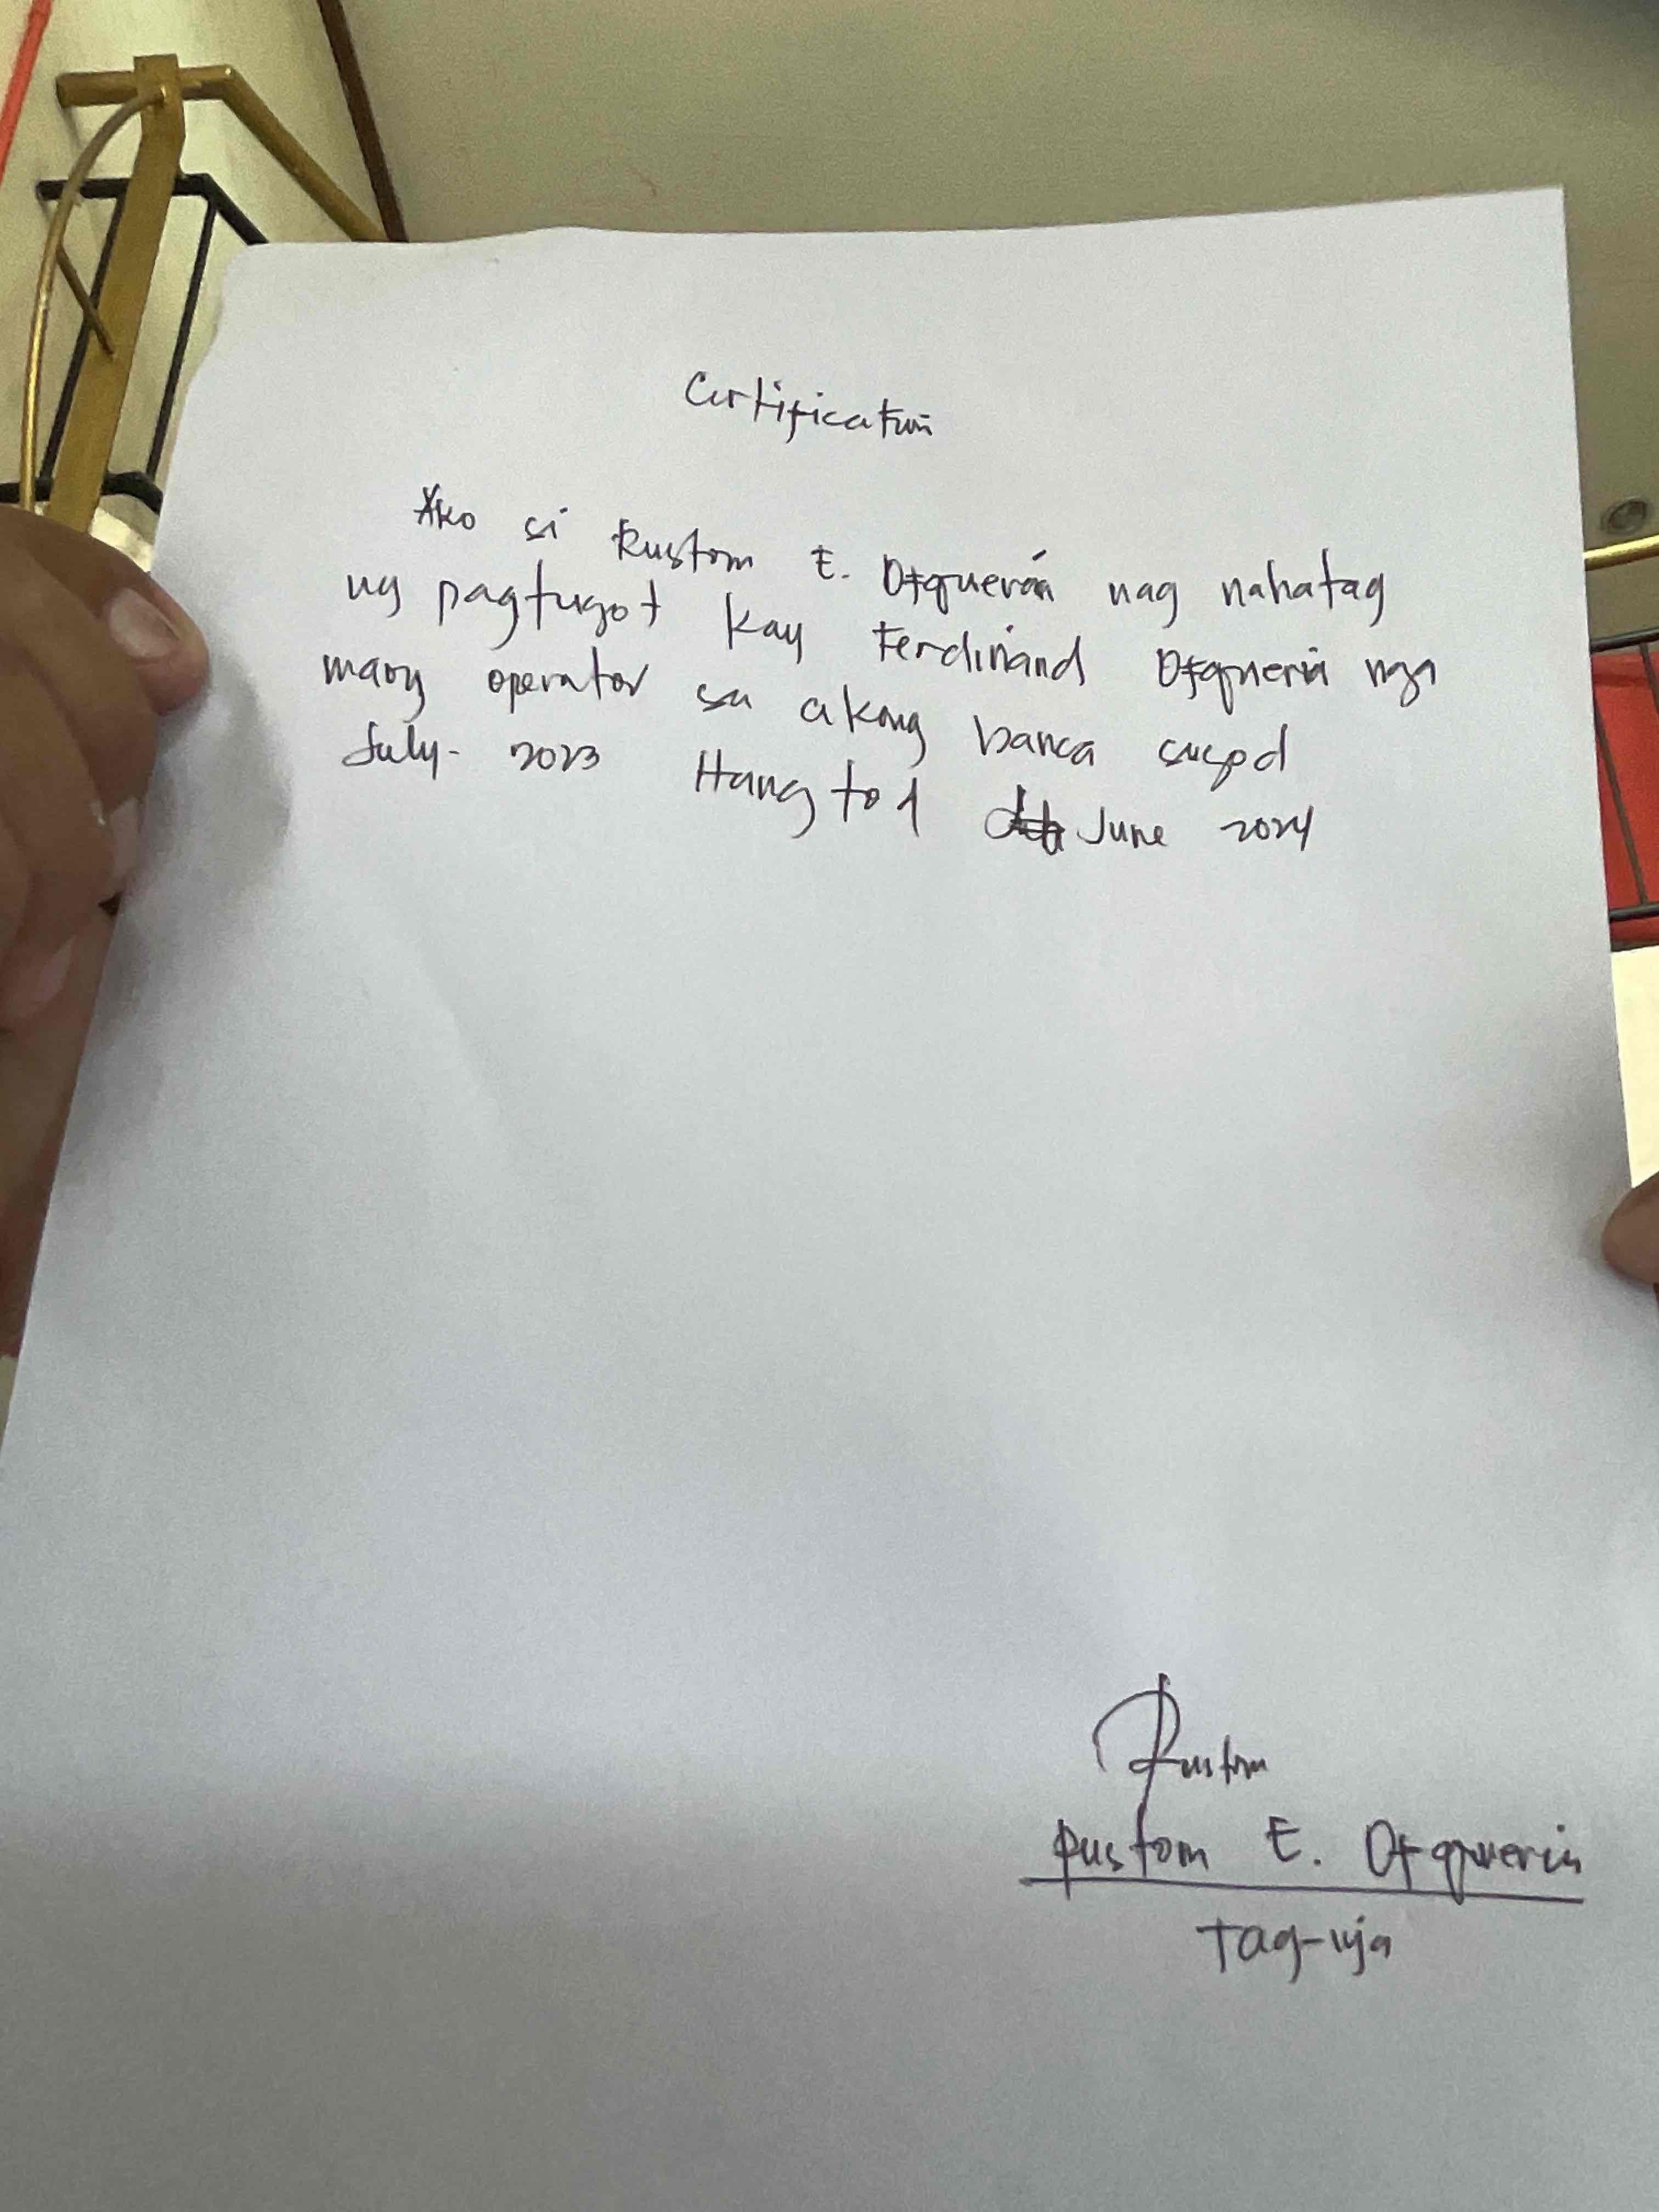 Certification
Ako si Rustom E. Otquerin nag nahatag
ug pagtugot kay Ferdinand Otquerin nga
maoy operator sa akong banca sugod
July - 2023 Hangtod June 2024
Rustom
Rustom E. Otquerin
Tag-iya